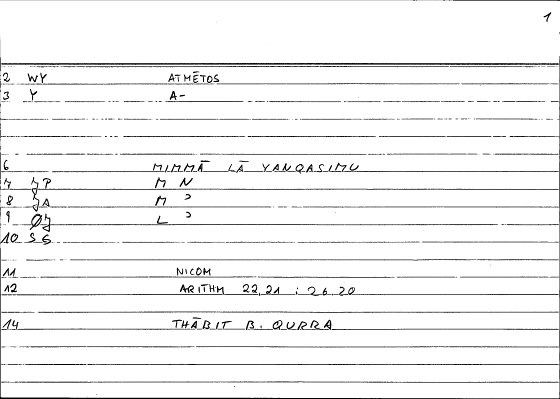 1
2 WY ATMĒTOS
3 Y A-
6 MIMMĀ LĀ YANQASIMU
7 ȜP M N
8 ȜA M ᵓ
9 ØȜ L ᵓ
10 SG
11 NICOM
12 ARITHM 22,21 ; 26,20
14 THĀBIT B. QURRA